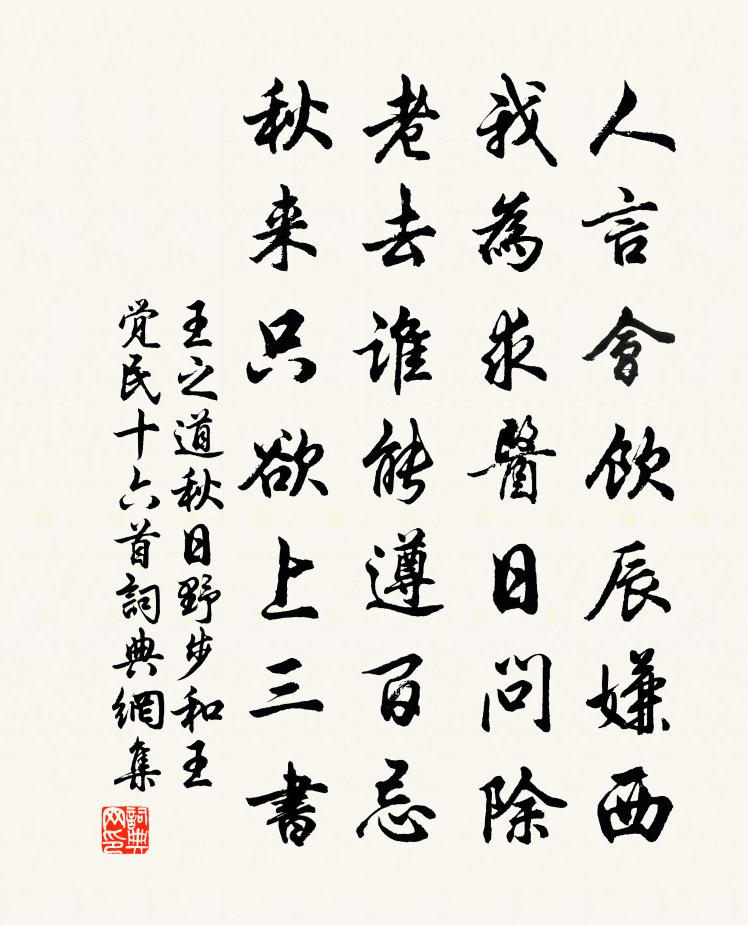 人言會飲辰嫌西
我為求醫日問除
老去誰能遵百忌
秋来只欲上三書
王之道秋日野步和王
覺民十六首詞典網集
詞典网印